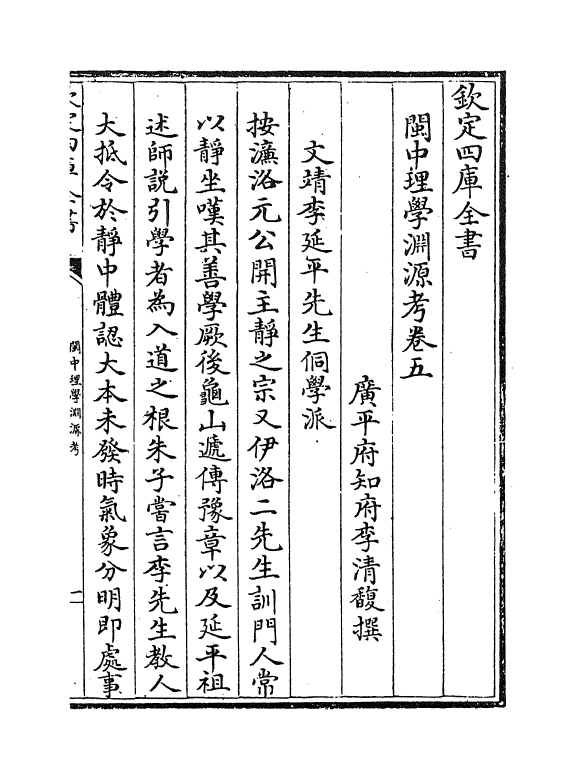 欽定四庫全書
閩中理學淵源考卷五
廣平府知府李清馥撰
文靖李延平先生侗學派
按濂洛元公開主靜之宗又伊洛二先生訓門人常
以靜坐嘆其善學厥後龜山遞傳豫章以及延平祖
述師説引學者為入道之根朱子嘗言李先生教人
大抵令於靜中體認大本未發時氣象分明即處事
閩中理學淵源考